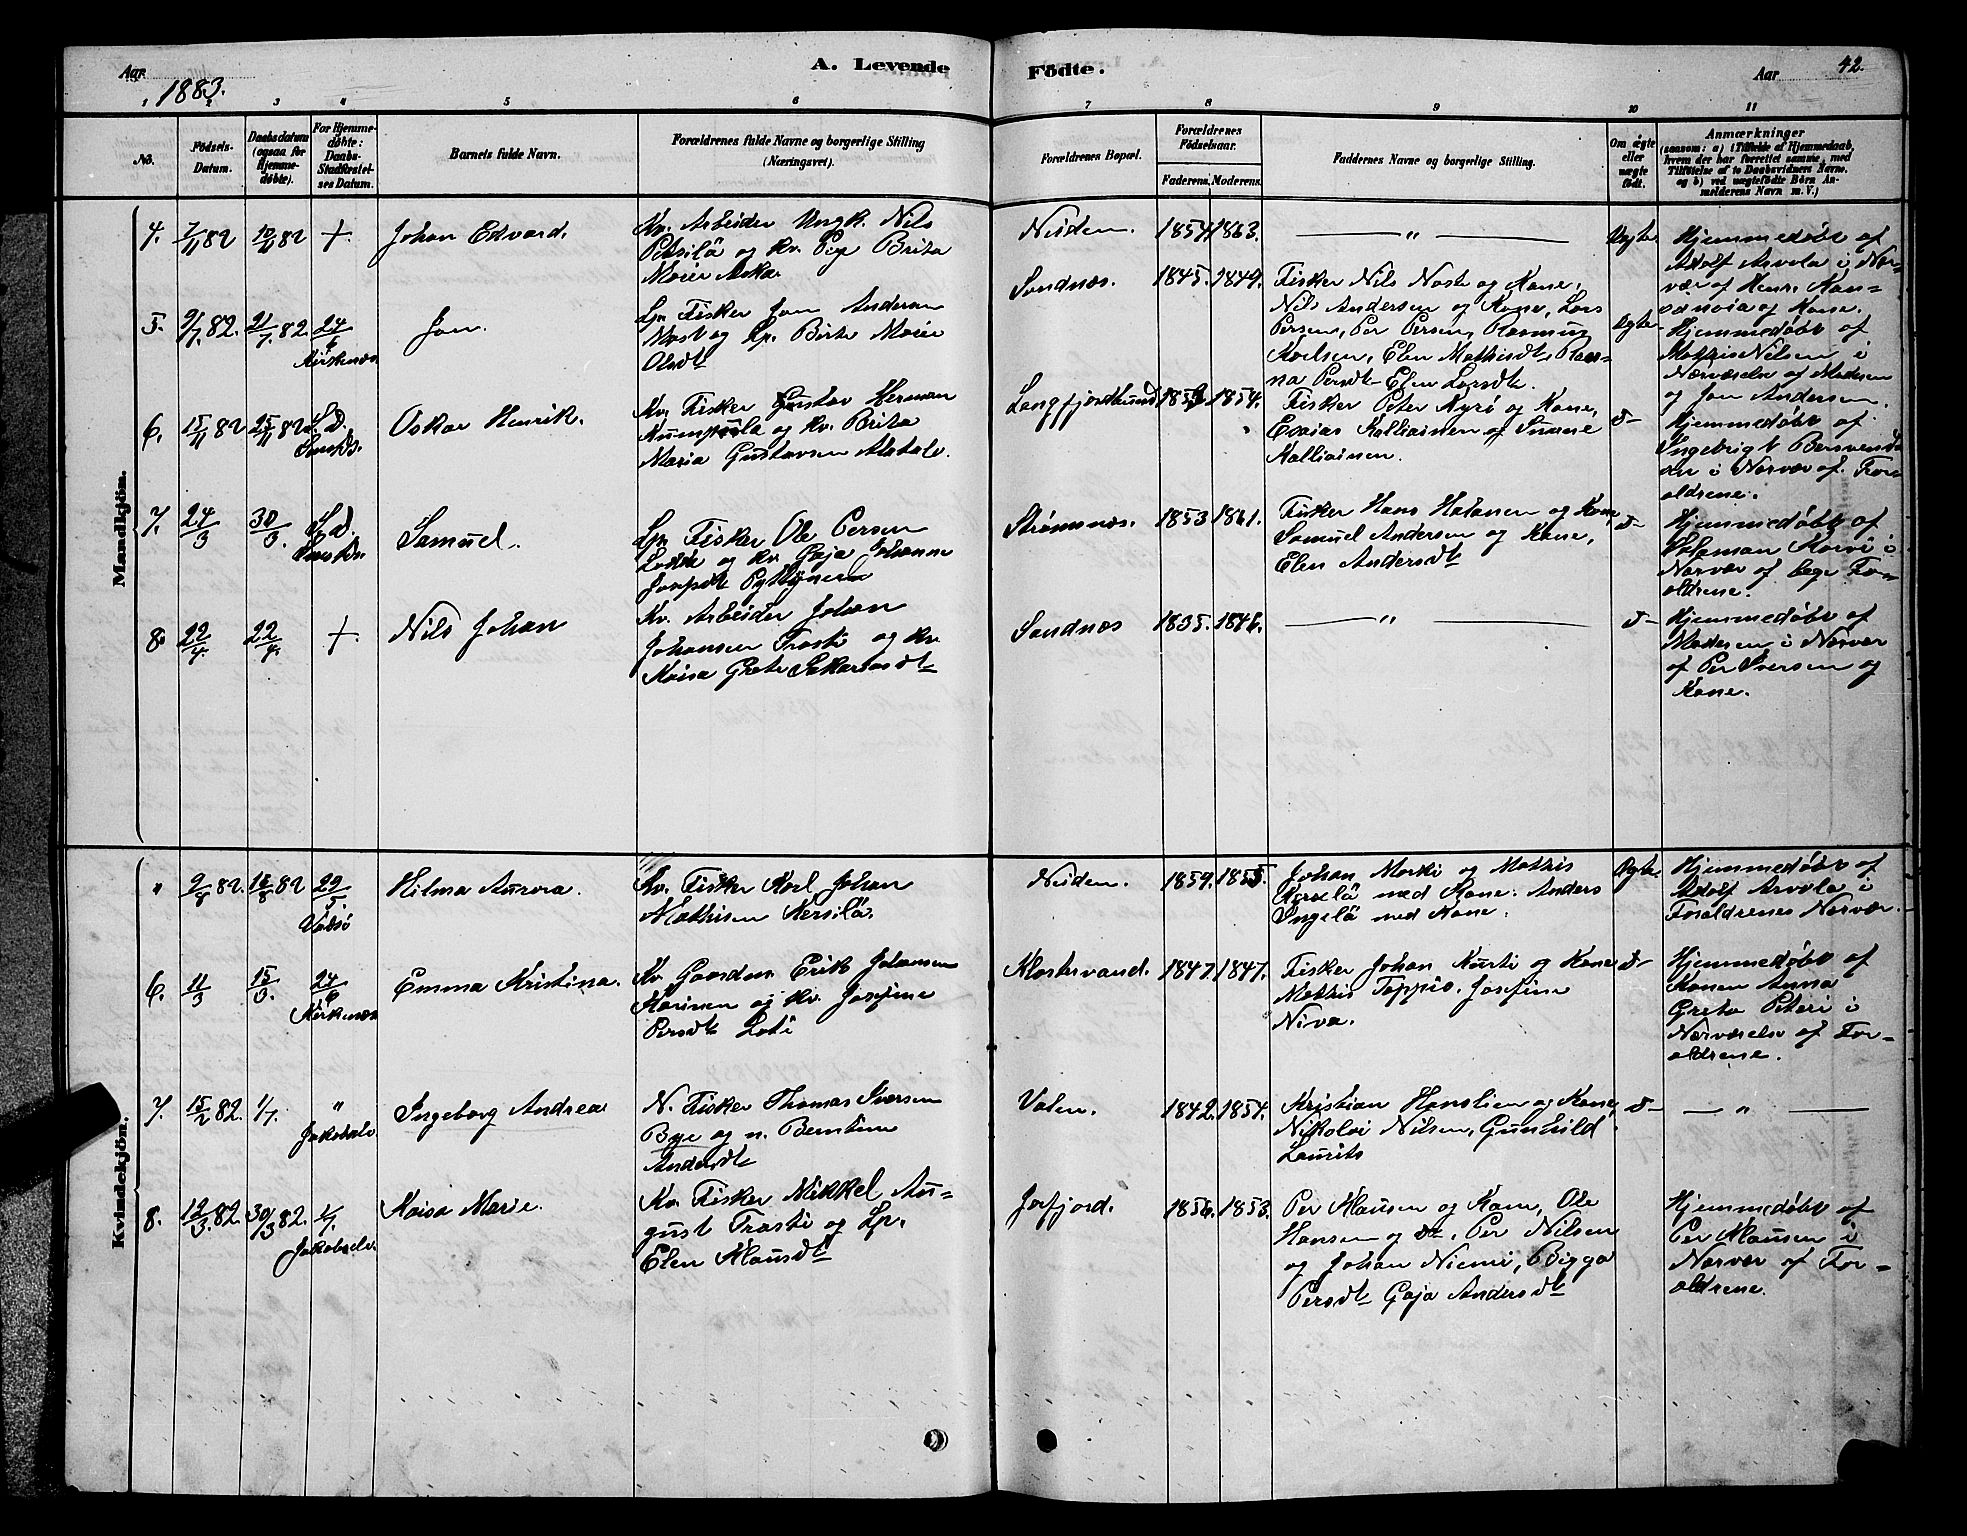 Aar 1883.
A. Levende
Födte.
Aar 42.
1 2 3 4 5 6 7 8 9 10 11
No.
Födsels-
Datum.
Daabsdatum
(ogsaa for
Hjemme-
döbte).
For Hjemme-
döbte:
Daabs-
Stadfæstel-
ses Datum.
Barnets fulde Navn.
Forældrenes fulde Navne og borgerlige Stilling
(Næringsvei).
Forældrenes Bopæl.
Forældrenes
Födselsaar.
Faderens. Moderens.
Faddernes Navne og borgerlige Stilling.
Om ægte
eller
uægte
födt.
Anmærkninger
(saasom: a) i Tilfælde af Hjemmedaab,
hvem der har forrettet samme, med
Tilföielse af to Daabsvidners Navne.
og b) ved uægtefödte Börn An-
melderens Navn m. V.)
Mandkjön.
4. 7/11 82 10/11 82 + Johan Edvard.
Kv. Arbeider Ungk. Nils
Petsilä og Kv. Pige Brita
Maria
Neiden. 1854 1863.
— " —
Uægte
Hjemmedöbt af
Adolf Arvola i Nær-
vær af Henr.
og Kone.
5. 9/7 82. 21/7 82 24/6 Kirkenæs
Jon.
Lp. Fisker Jon Andersen
Nost og Lp. Birte Marie
Olsdt
Sandnæs. 1845. 1849.
Fisker Nils Noste og Kone,
Nils Andersen og Kone, Lars
Persen, Per Persen, Rasmus
Karlsen, Elen Mathisdt,
Persdt Elen Larsdt.
Ægte
Hjemmedöbt af
Mathis Nilsen i
Nærværelse af Moderen
og Jon Andersen.
6. 15/11 82 25/11 82 S. D.
Oskar Henrik.
Kv. Fisker Gustav Herman
Kumpula og Kv. Brita
Maria Gustavsen Alatalo.
Langfjordbund 1854.
Fisker Peter Kyrö og Kone,
Esaias Kalliainen og
Kalliainen.
d-
Hjemmedöbt af
Ingebrigt
i Nærvær af For-
ældrene.
7. 24/3 30/3. S. D.
Samuel.
Lp. Fisker Ole Persen
og Kv. Gaja Johanne
Strömnæs. 1853 1861.
Fisker Hans Halonen og Kone,
Samuel Andersen og Kone,
Elen Andersdt
d-
Hjemmedöbt af
Salomon Korvi i
Nærvær af begge For-
ældrene.
8. 22/4 22/4. + Nils Johan
Kv. Arbeider Johan
Johansen Trasti og Kv.
Kaisa Grete
Sandnæs 1835. 1846.
— " —
d-
Hjemmedöbt af
Moderen i Nærvær
af Per Iversen og
Kone.
Kvindekjön.
" 9/8 82. 16/8 82 29/5. Vadsö
Hilma Aurora.
Kv. Fisker Karl Johan
Mathisen Kersilä.
Neiden. 1859. 1855.
Johan Marki og Mathis
Karselä med Kone. Anders
Ingelä med Kone.
Ægte
Hjemmedöbt af
Adolf Arvola i
Forældrenes Nærvær.
6. 11/3 15/3. 24/6 Kirkenæs
Emma Kristina.
Kv. Gaardm. Erik Johansen
Karinen og Kv. Josefine
Persdt Loti
Klostervand. 1847. 1847.
Fisker Johan Kurti og Kone
Mathis Toppio. Josefine
Niva.
d-
Hjemmedöbt af
Konen Anna
Greta Peteri i
Nærværelse af For-
ældrene.
7. 15/2 82. 1/7. " Jakobselv.
Ingeborg Andrea
N. Fisker Thomas Iversen
Bye og n. Berntine
Andersdt
Valen. 1842. 1854.
Kristian Hanslien og Kone,
Nikolai Nilsen, Gunhild
Laurits
d-
— " —
8. 12/3. 82. 30/3 82. 1/7. Jakobselv.
Kaisa Marie.
Kv. Fisker Mikkel Au-
gust Trasti og Lp.
Elen Klausdt
Jarfjord. 1856. 1853.
Per Klausen og Kone, Ole
Hansen og do, Per Nilsen
og Johan Niemi, Bigga
Persdt Gaja Andersdt
Hjemmedöbt af
Per Klausen i
Nærvær af For-
ældrene.